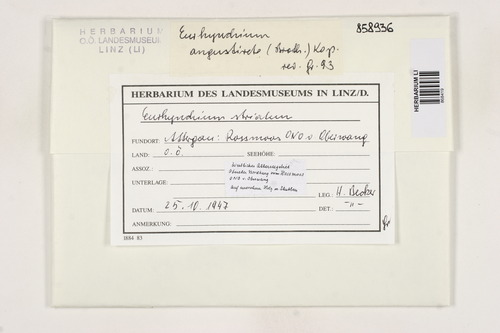 HERBARIUM
O.Ö. LANDESMUSEUM
LINZ (LI)
858936
Eurhynchium
angustirete (Broth.) Kop.
rev. Gr. 93
HERBARIUM LI
HERBARIUM DES LANDESMUSEUMS IN LINZ/D.
Eurhynchium striatum
FUNDORT: Attergau: Rossmoos ONO v Oberwang
LAND: O.Ö. SEEHÖHE:
ASSOZ.:
UNTERLAGE:
ONO v. Oberwang
Auf morschem Holz
LEG.: H. Becker
DATUM: 25. 10. 1947 DET.: -"-
ANMERKUNG:
1884 83